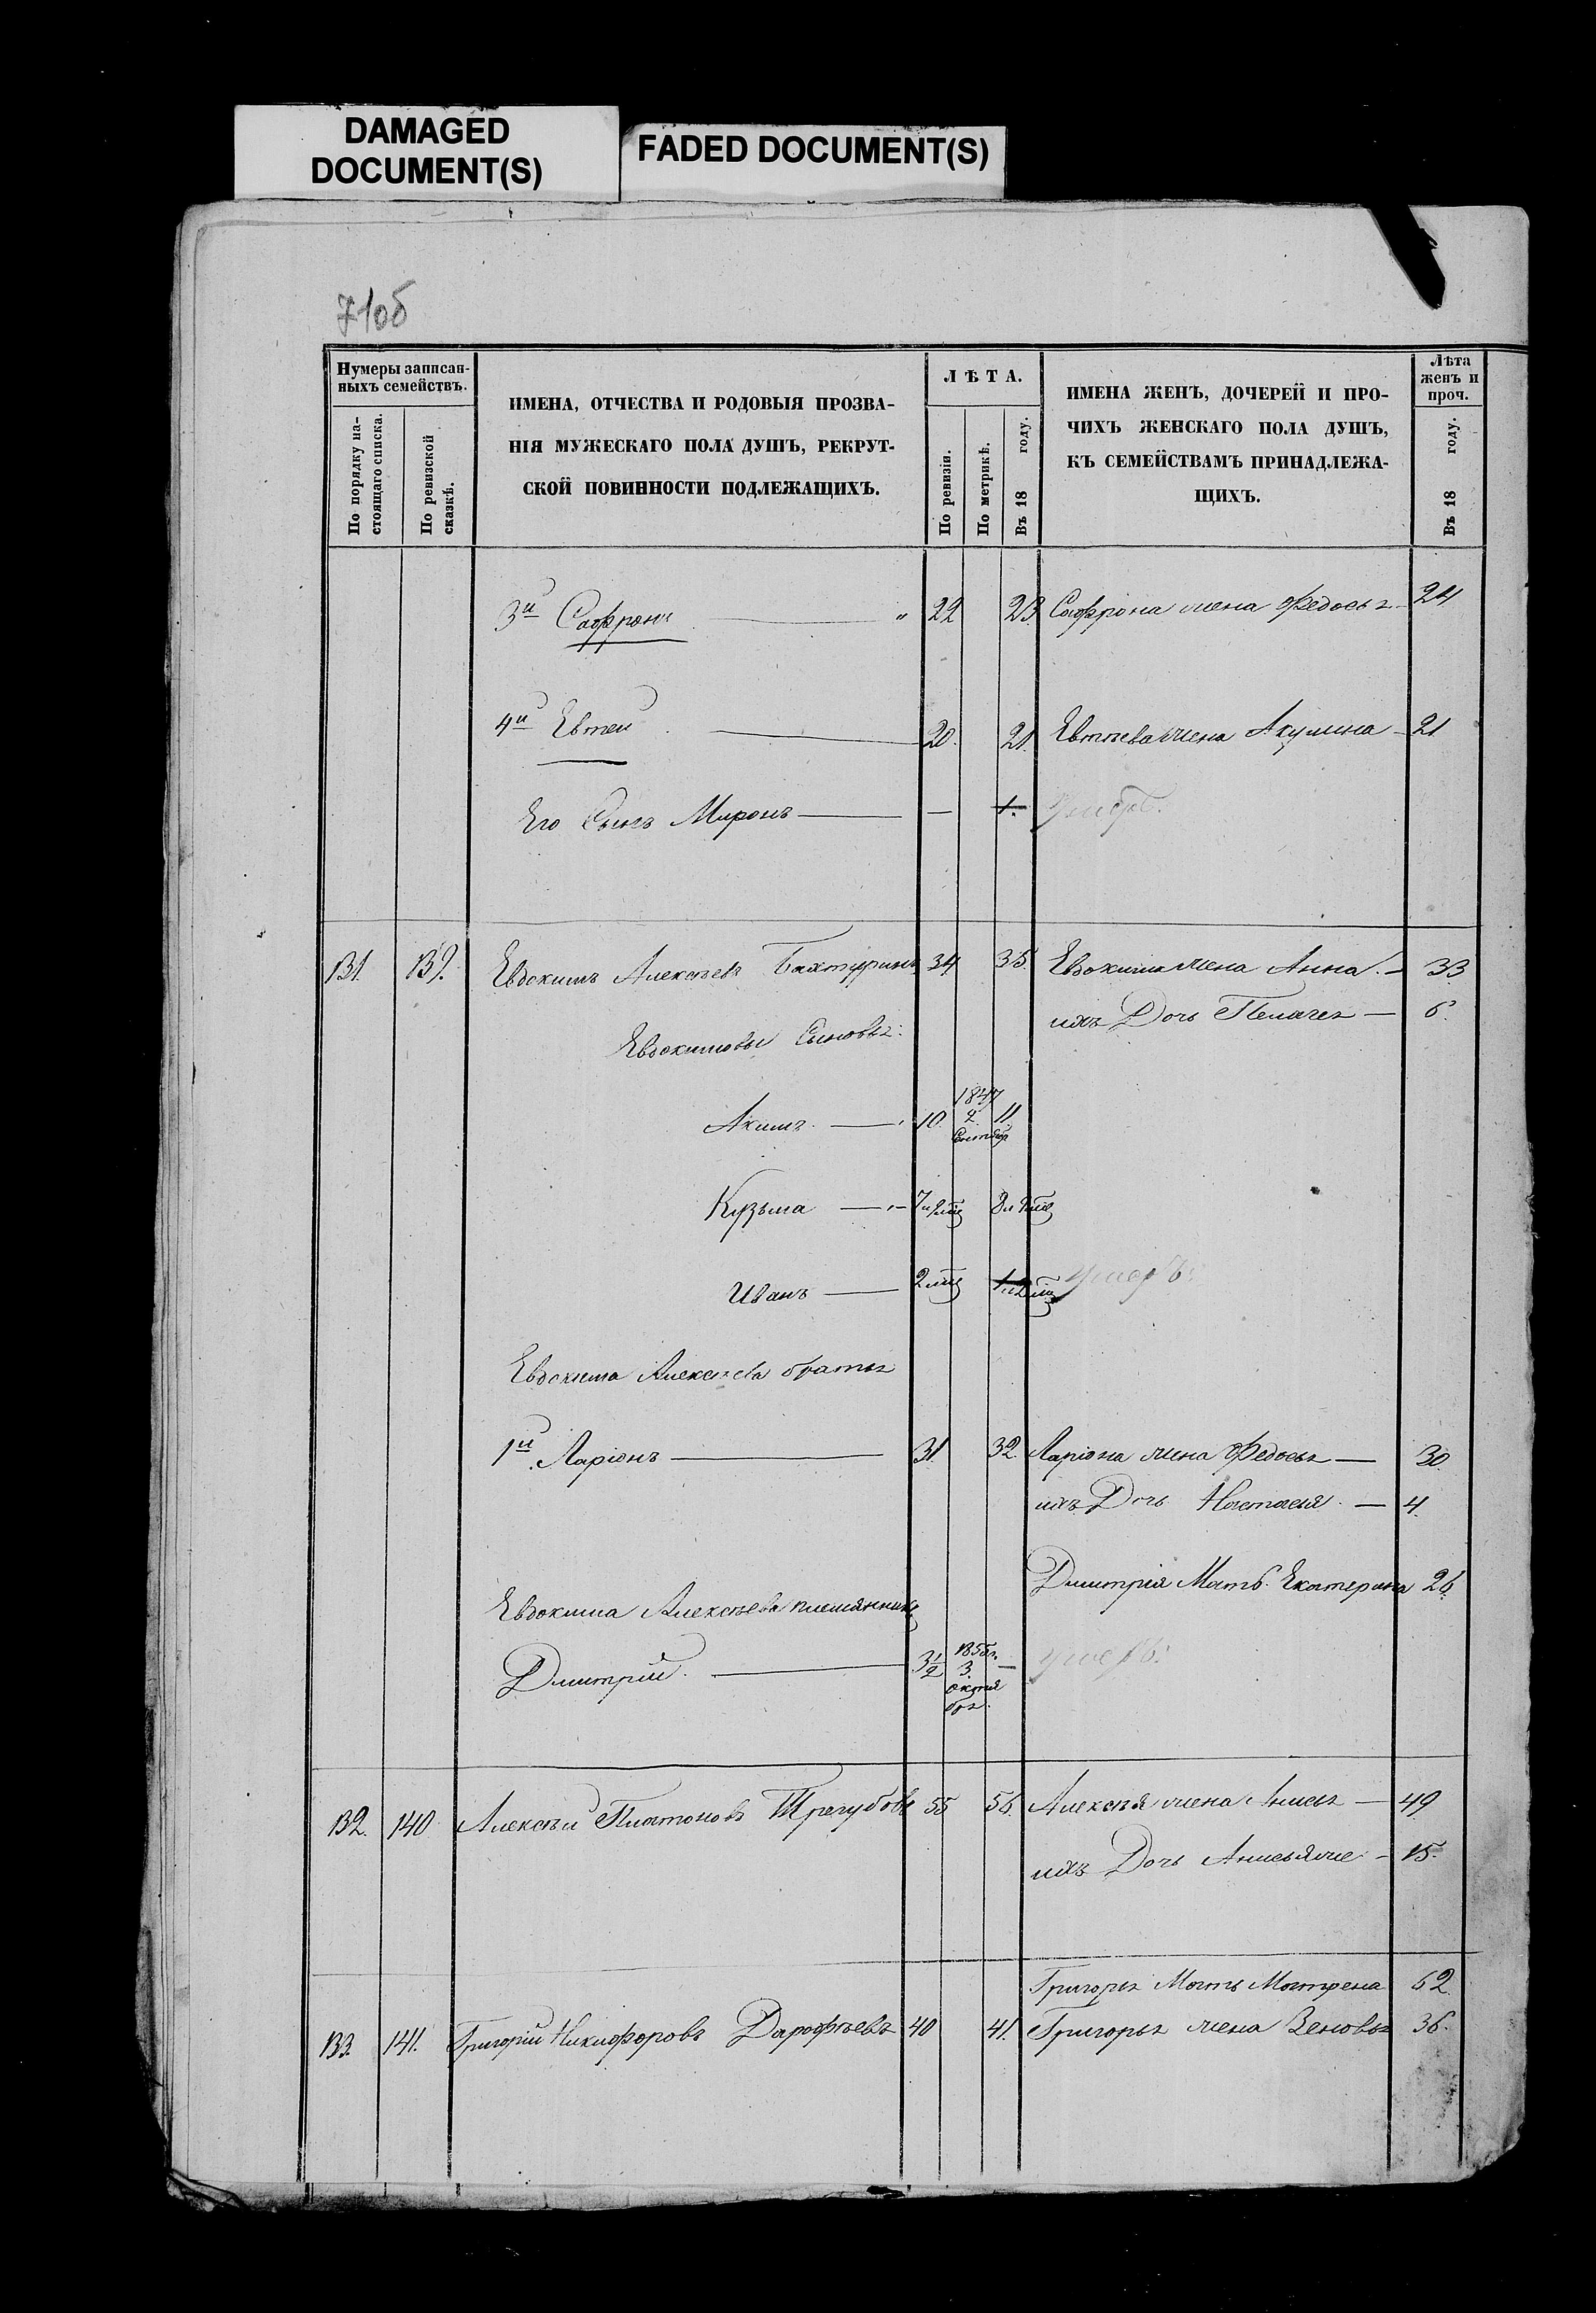 DAMAGED
DOCUMENT(S)
FADED DOCUMENT(S)
71об
Нумеры записан-
ныхъ семействъ.
По порядку на-
стоящаго списка.
По ревизской
сказкѣ.
ИМЕНА, ОТЧЕСТВА И РОДОВЫЯ ПРОЗВА-
НІЯ МУЖЕСКАГО ПОЛА ДУШЪ, РЕКРУТ-
СКОЙ ПОВИННОСТИ ПОДЛЕЖАЩИХЪ.
ЛѢТА.
По ревизіи.
По метрикѣ.
Въ 18 году.
ИМЕНА ЖЕНЪ, ДОЧЕРЕЙ И ПРО-
ЧИХЪ ЖЕНСКАГО ПОЛА ДУШЪ,
КЪ СЕМЕЙСТВАМЪ ПРИНАДЛЕЖА-
ЩИХЪ.
Лѣта
женъ и
проч.
Въ 18 году.
3й Сафронъ — " 22 23 Сафрона жена Федосья 24
4й Евтей — 20. 21. Евтѣева жена Акулина — 21
Его Сынъ Миронъ — — 1. умеръ.
131. 139. Евдокимъ Алексѣевъ Бахтуринъ 34 35. Евдокима жена Анна. — 33
ихъ Дочь Пелагея — 6.
Евдокимовы Сыновья:
Акимъ. — 10. 1847 2 Сентябр 11
Кузьма — 7
Иванъ — умеръ.
Евдокима Алексѣева братья
1й Ларіонъ — 31. 32. Ларіона жена Федосья — 30.
ихъ Дочь Настасья. — 4.
Дмитрія Мать. Екатерина 26
Евдокима Алексѣева племянникъ
Дмитрій. — 3½ 185 3. октя
бря. — умеръ.
132. 140 Алексѣй Платоновъ Трегубовъ 55 56. Алексѣя жена — 49
ихъ Дочь — 15.
Григорья Мать Матрена 62.
133. 141. Григорій Никифоровъ Дарофѣевъ 40 41. Григорья жена Зеновья 36.